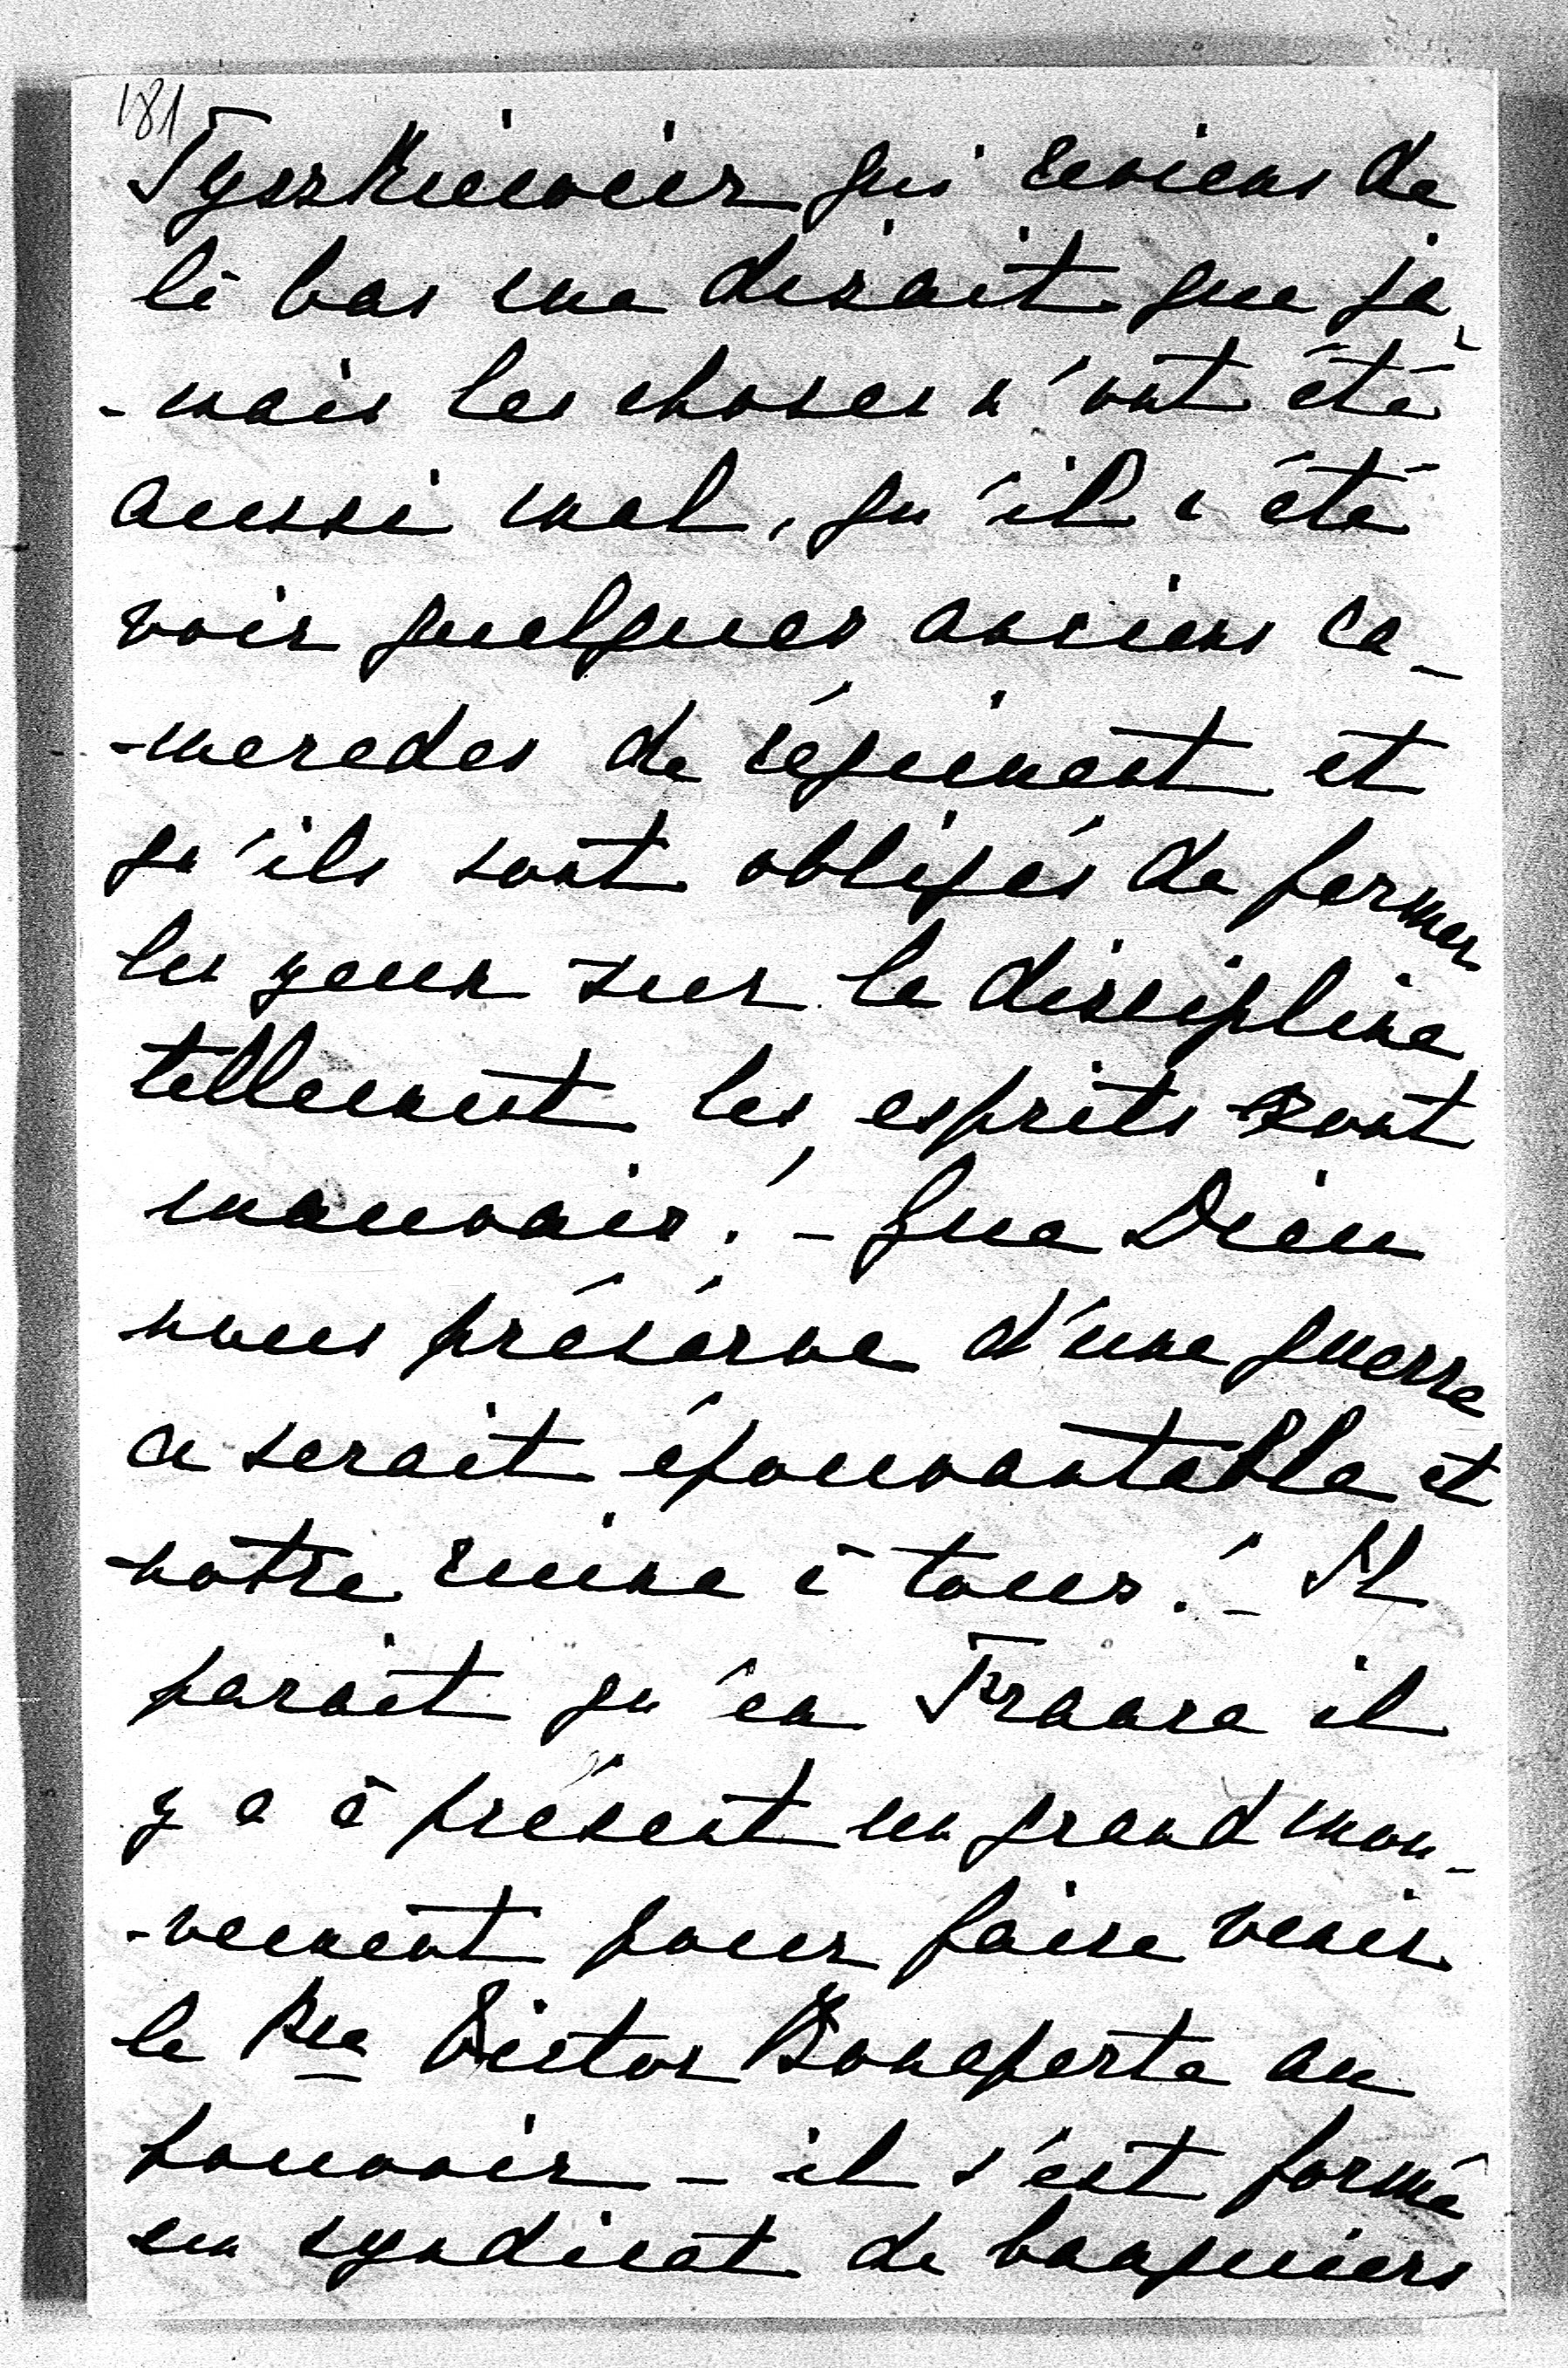 181
Tyszkiewicz qui reviens de
là bas me disait que ja
-mais les choses n'ont été
aussi mal, qu'il a été
voir quelques anciens ca-
-marades de régiment et
qu'ils sont obligés de fermer
les yeux sur la discipline
tellement les esprits sont
mauvais! - Que Dieu
nous préserve d'une guerre
ce serait épouvantable et
notre ruine à tous! - Il
parait qu'en France il
y a à présent un grand mou-
-vement pour faire venir
le Pce Victor Bonaparte au
pouvoir - il s'est formé
un syndicat de banquiers